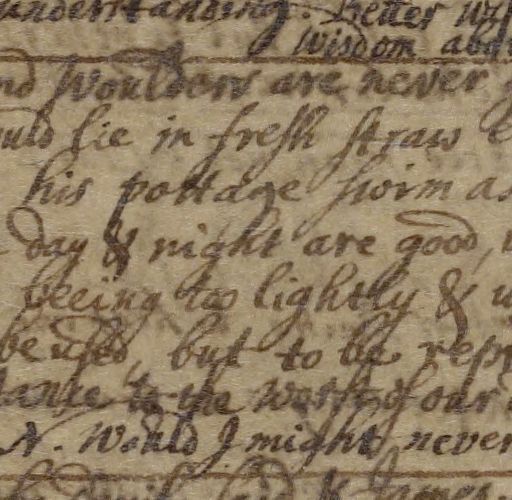 understanding. Better
Wisdom
Woulders are never
lie in fresh straw
his pottage swim as
day & night are good,
beeing too lightly &
be used, but to be
to the worth of our
N. Would I might never